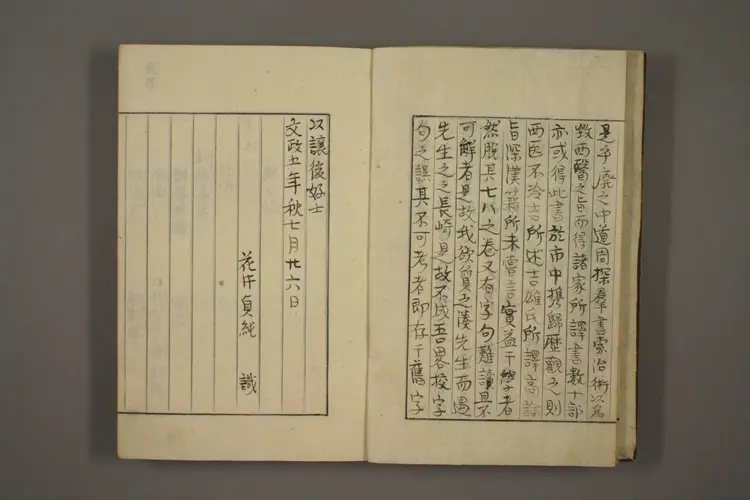 是乎廃之中道周探羣書索治術以為
西醫之旨而得諸家所譯書數十部
亦或得此書於市中携歸歴觀之則
西医不冷吉所述吉雄氏所譯高
旨深漢籍所未實益于學者
然脱其七八之巻又有字句難讀且不
可解者是故我欲質之湊先生而遇
先生之之長崎是故不成吾畧校字
句之誤其不可考者即存于舊字
以讓後好士
文政五年秋七月廿六日
花井貞純 識